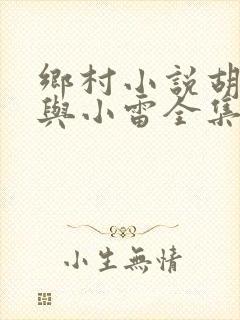 鄉村小說胡
與小雷全集
小生無情